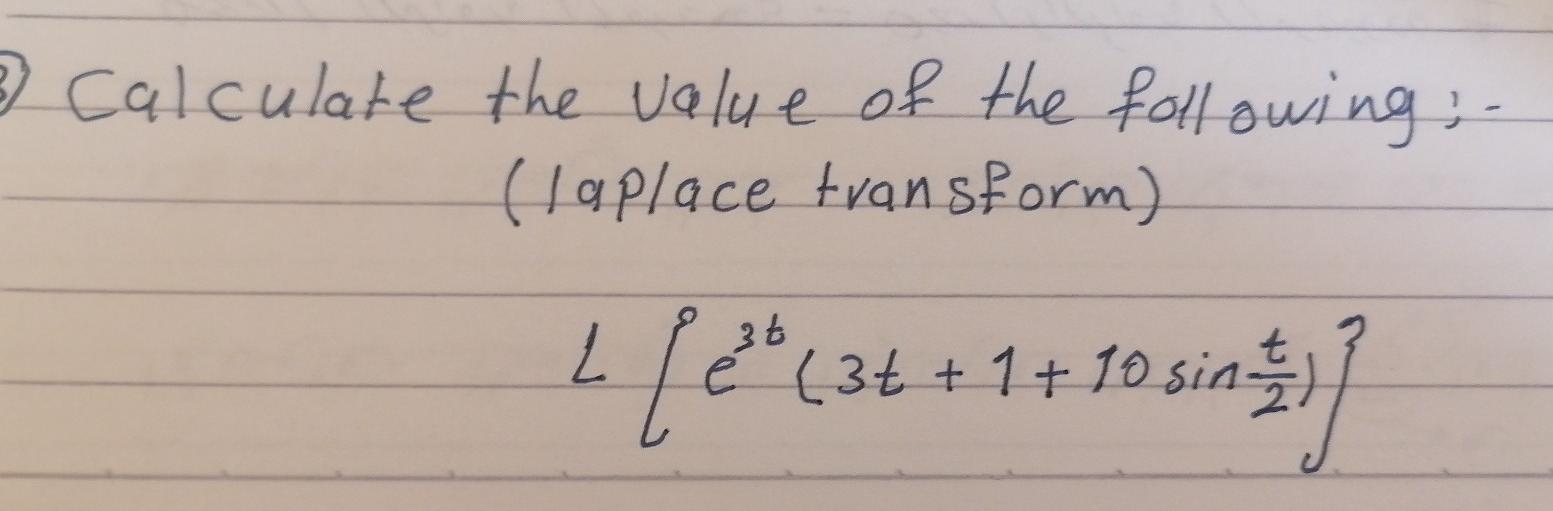 3) Calculate the value of the following :-
(laplace transform)
L [e^{3t} (3t + 1 + 10 sin \frac{t}{2})]